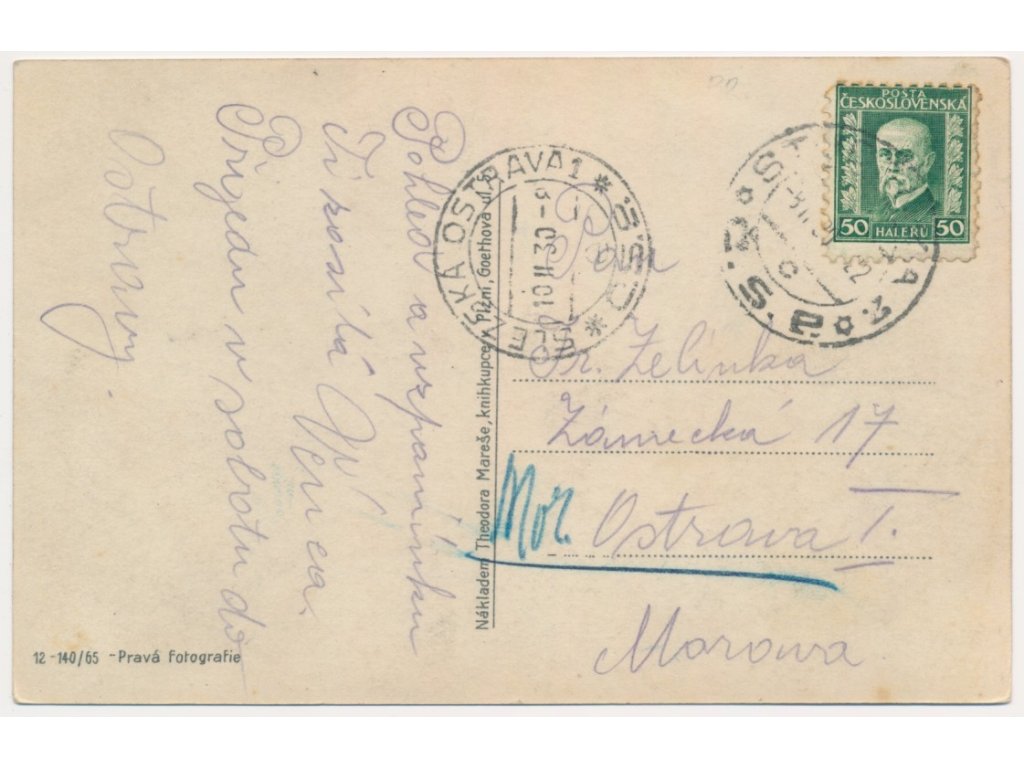 Pohled a vzpomínku
Ti posílá Věnca.
Přijedu v sobotu do
Ostravy.
12-140/65 - Pravá Fotografie
Nákladem Theodora Mareše, knihkupce v Plzni, Goethova ul. 5
SLEZSKÁ OSTRAVA 1
10 II 30 - 9
POSTA
ČESKOSLOVENSKÁ
50 HALÉŘŮ 50
Pan
Fr. Zelinka
Zámecká 17
Mor. Ostrava I.
Morawa